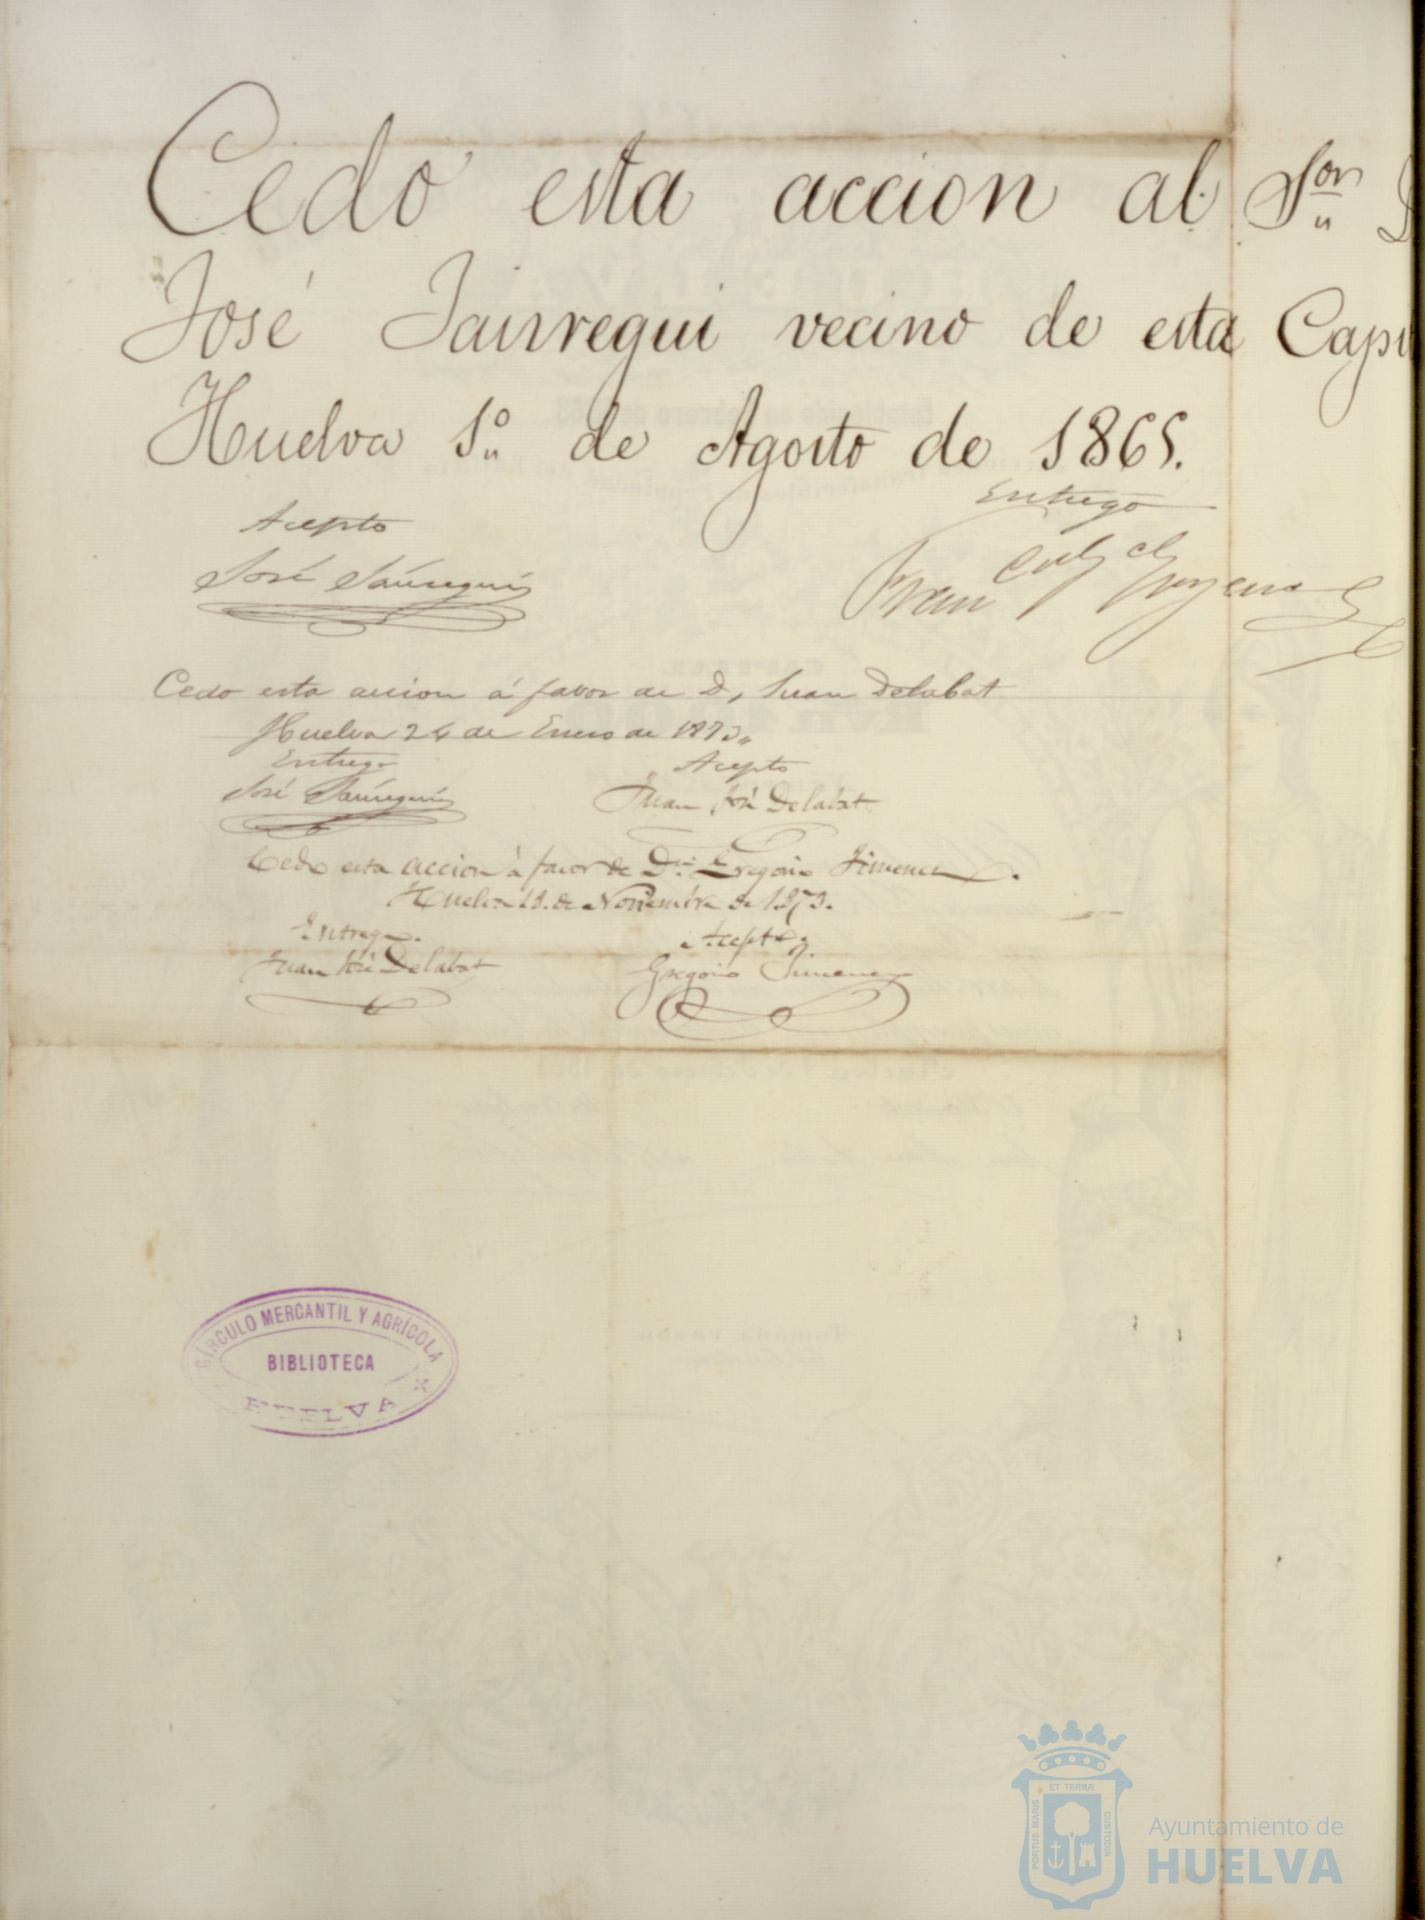 Cedo esta accion al Sor
José Jaurregui vecino de esta
Huelva 1º de Agosto de 1865.
Entrego
Acepto
José Jaúregui
Fran
Cedo esta accion á favor de D, Juan Delabat
Huelva 24 de Enero de 1873
Entrego
Acepto
José Jaúregui
Juan José Delabat
Cedo esta accion á favor de Dn Gregorio Jimenez.
Huelva 11. de Noviembre de 1873.
Entrego.
Acepto.
Juan José Delabat
Gregorio Jimenez
CÍRCULO MERCANTIL Y AGRÍCOLA
BIBLIOTECA
HUELVA
ET TERRÆ
PORTUS MARIS
CUSTODIA
Ayuntamiento de
HUELVA